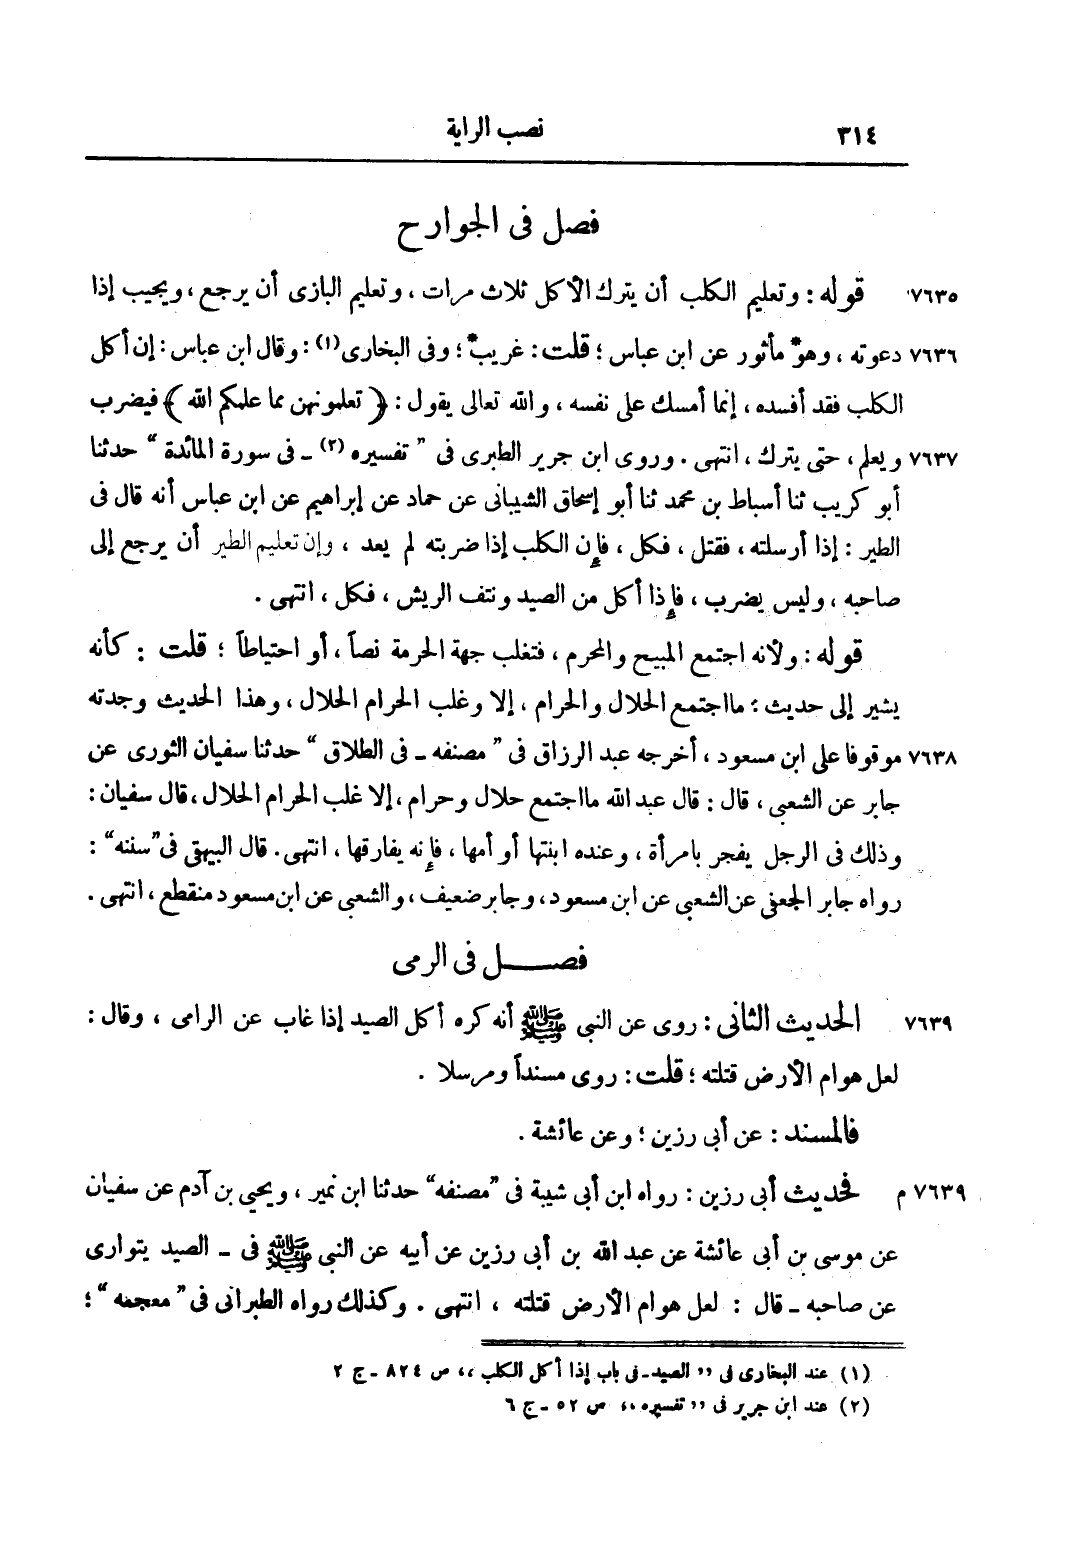 ٣١٤ نصب الراية
فصل فى الجوارح
٧٦٣٥ قوله : وتعليم الكلب أن يترك الأكل ثلاث مرات ، وتعليم البازى أن يرجع ، ويجيب إذا
٧٦٣٦ دعوته ، وهو مأثور عن ابن عباس ؛ قلت : غريب ؛ وفى البخارى (١) : وقال ابن عباس : إن أكل
الكلب فقد أفسده ، إنما أمسك على نفسه ، والله تعالى يقول : ﴿ تعلمونهن مما علمكم الله ﴾ فيضرب
٧٦٣٧ ويعلم ، حتى يترك ، انتهى . وروى ابن جرير الطبرى فى " تفسيره (٢) ـ فى سورة المائدة " حدثنا
أبو كريب ثنا أسباط بن محمد ثنا أبو إسحاق الشيبانى عن حماد عن إبراهيم عن ابن عباس أنه قال فى
الطير : إذا أرسلته ، فقتل ، فكل ، فإن الكلب إذا ضربته لم يعد ، وإن تعليم الطير أن يرجع إلى
صاحبه ، وليس يضرب ، فإذا أكل من الصيد ونتف الريش ، فكل ، انتهى .
قوله : ولأنه اجتمع المبيح والمحرم ، فتغلب جهة الحرمة نصاً ، أو احتياطاً ؛ قلت : كأنه
يشير إلى حديث : ما اجتمع الحلال والحرام ، إلا وغلب الحرام الحلال ، وهذا الحديث وجدته
٧٦٣٨ موقوفا على ابن مسعود ، أخرجه عبد الرزاق فى " مصنفه ـ فى الطلاق " حدثنا سفيان الثورى عن
جابر عن الشعبى ، قال : قال عبد الله ما اجتمع حلال وحرام ، إلا غلب الحرام الحلال ، قال سفيان :
وذلك فى الرجل يفجر بامرأة ، وعنده ابنتها أو أمها ، فإنه يفارقها ، انتهى . قال البيهقى فى "سننه" :
رواه جابر الجعفى عن الشعبى عن ابن مسعود ، وجابر ضعيف ، والشعبى عن ابن مسعود منقطع ، انتهى .
فصـــل فى الرمى
٧٦٣٩ الحديث الثانى : روى عن النبى ﷺ أنه كره أكل الصيد إذا غاب عن الرامى ، وقال :
لعل هوام الأرض قتلته ؛ قلت : روى مسنداً ومرسلا .
فالمسند : عن أبى رزين ؛ وعن عائشة .
٧٦٣٩ م فحديث أبى رزين : رواه ابن أبى شيبة فى "مصنفه" حدثنا ابن نمير ، ويحيى بن آدم عن سفيان
عن موسى بن أبى عائشة عن عبد الله بن أبى رزين عن أبيه عن النبى ﷺ فى ـ الصيد يتوارى
عن صاحبه ـ قال : لعل هوام الأرض قتلته ، انتهى . وكذلك رواه الطبرانى فى " معجمه " ؛
(١) عند البخارى فى ,, الصيد ـ فى باب إذا أكل الكلب ,, ص ٨٢٤ ـ ج ٢
(٢) عند ابن جرير فى ,, تفسيره ,, ص ٥٢ ـ ج ٦